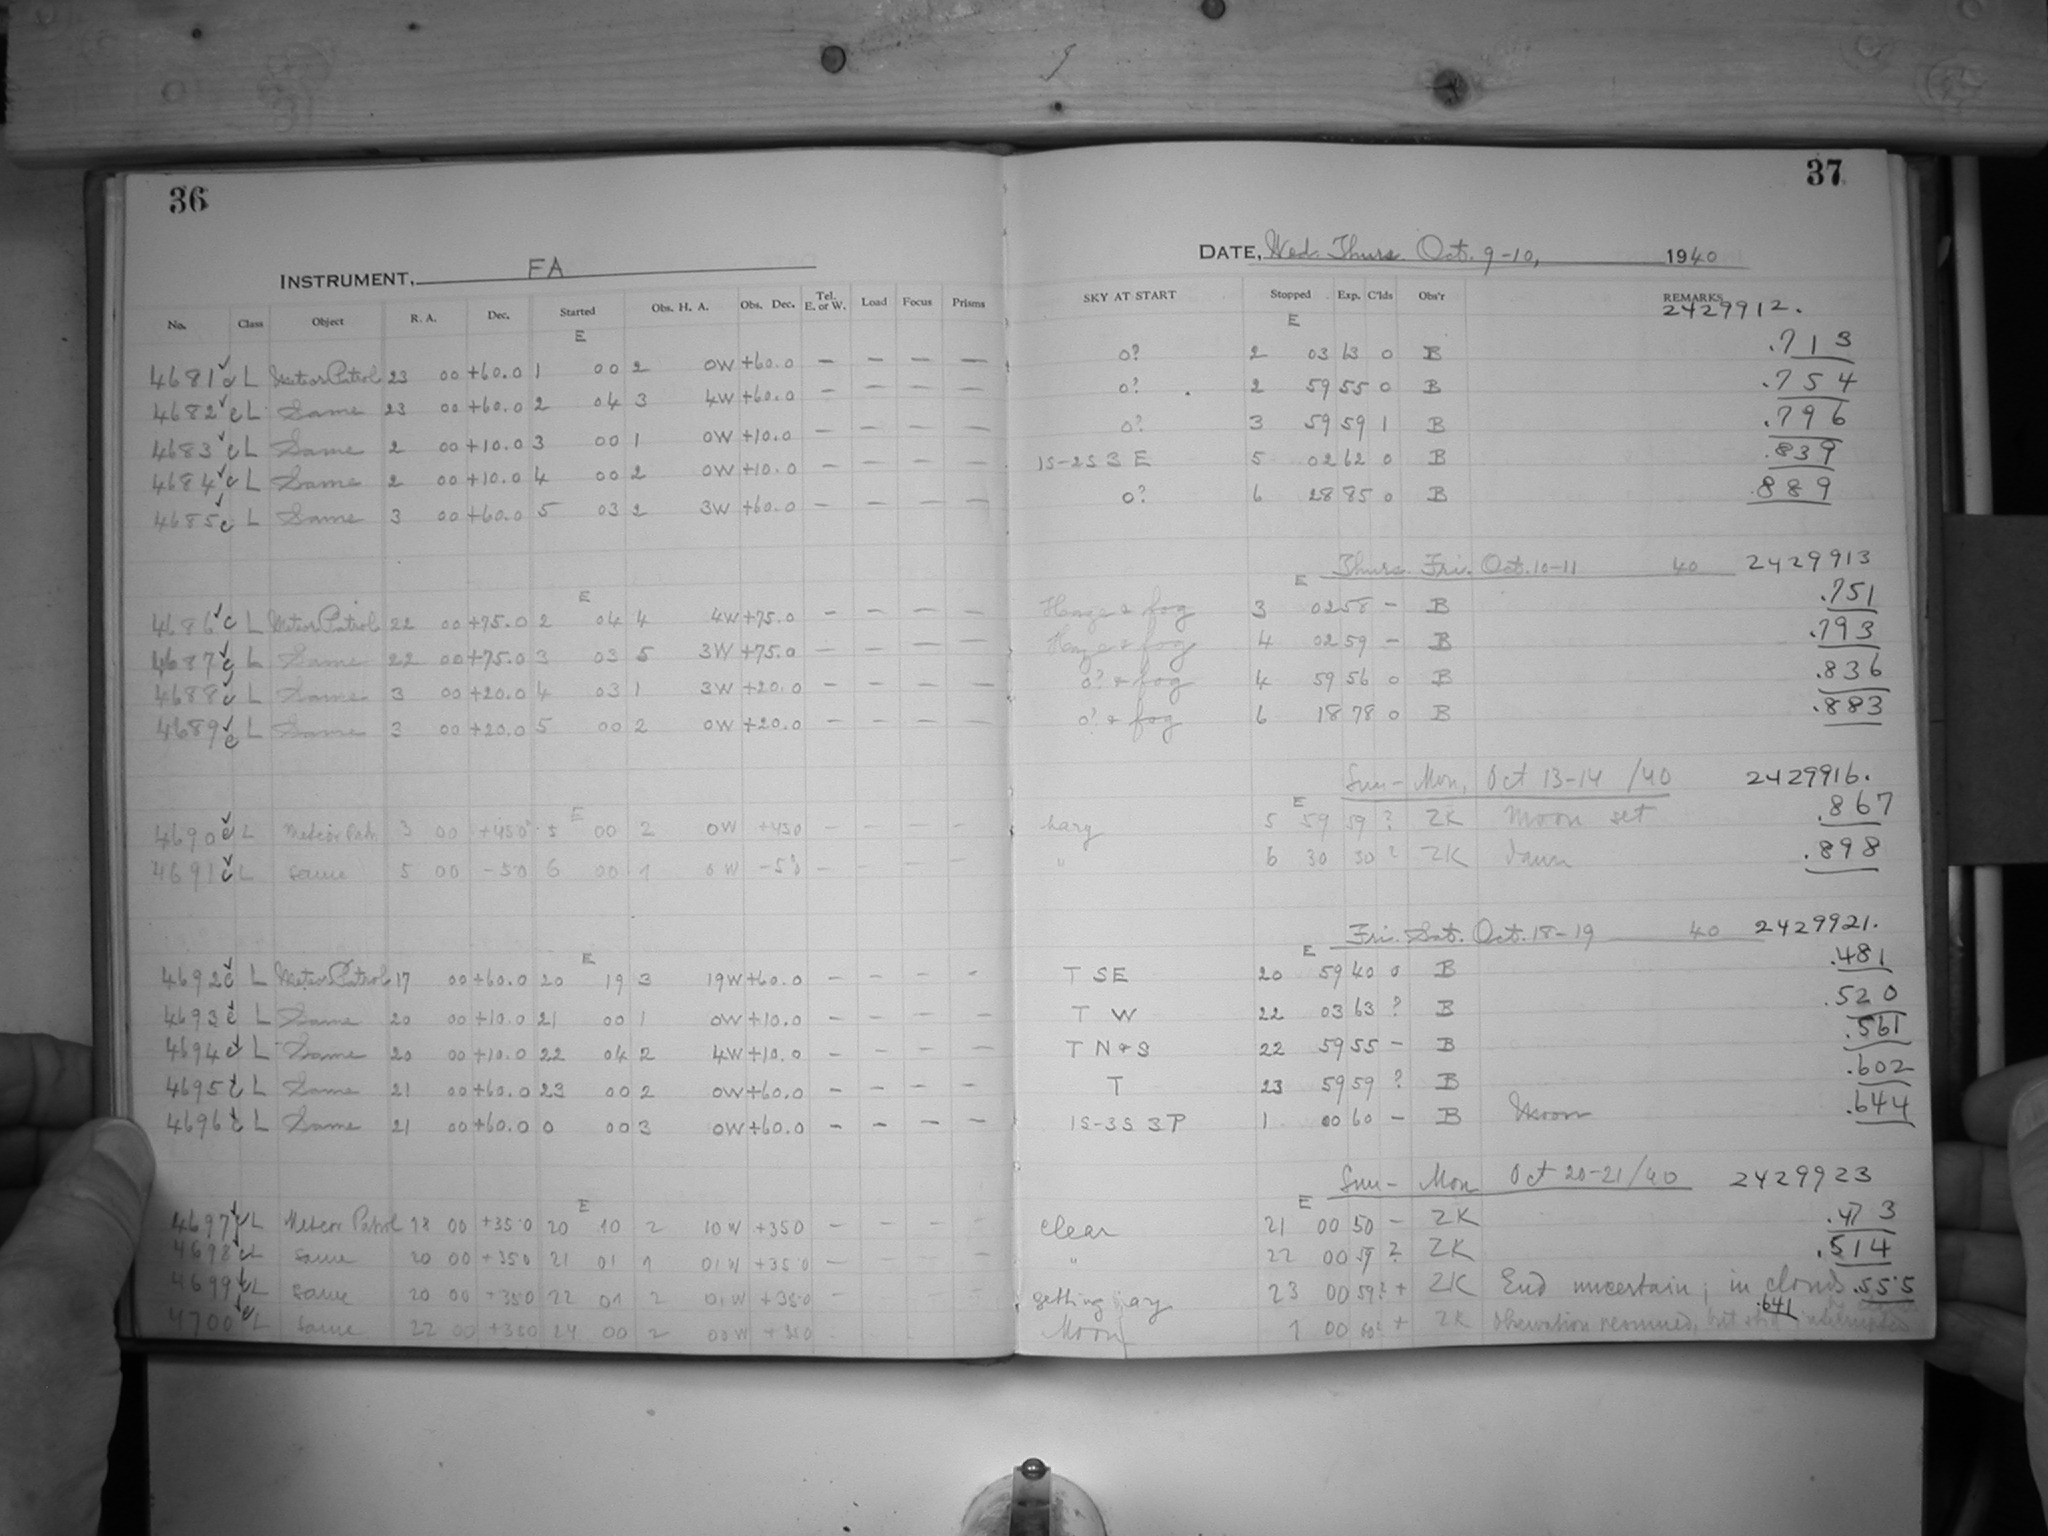 36
INSTRUMENT, FA
No. Class Object R. A. Dec. Started Obs. H. A. Obs. Dec. Tel. E. or W. Load Focus Prisms
E
4681 c L Meteor Patrol 23 00 +60.0 1 00 2 0W +60.0 — — — —
4682 c L Same 23 00 +60.0 2 04 3 4W +60.0 — — — —
4683 c L Same 2 00 +10.0 3 00 1 0W +10.0 — — — —
4684 c L Same 2 00 +10.0 4 00 2 0W +10.0 — — — —
4685 c L Same 3 00 +60.0 5 03 2 3W +60.0 — — — —
E
4686 c L Meteor Patrol 22 00 +75.0 2 04 4 4W +75.0 — — — —
4687 c L Same 22 00 +75.0 3 03 5 3W +75.0 — — — —
4688 c L Same 3 00 +20.0 4 03 1 3W +20.0 — — — —
4689 c L Same 3 00 +20.0 5 00 2 0W +20.0 — — — —
E
4690 c L Meteor Patr 3 00 +450 5 00 2 0W +450 — — — —
4691 c L same 5 00 -50 6 00 1 0W -50 — — — —
E
4692 c L Meteor Patrol 17 00 +60.0 20 19 3 19W +60.0 — — — -
4693 c L Same 20 00 +10.0 21 00 1 0W +10.0 — — — —
4694 c L Same 20 00 +10.0 22 04 2 4W +10.0 — — — —
4695 c L Same 21 00 +60.0 23 00 2 0W +60.0 — — — —
4696 c L Same 21 00 +60.0 0 00 3 0W +60.0 — — — —
E
4697 L Meteor Patrol 18 00 +350 20 10 2 10W +350 — — — -
4698 c L same 20 00 +350 21 01 1 01W +350 — — — —
4699 L same 20 00 +350 22 01 2 01W +350 —
4700 c L same 22 00 +350 24 00 2 00W +350
37
DATE, Wed. Thurs. Oct. 9-10, 1940
SKY AT START Stopped Exp. C'lds Obs'r REMARKS
2429912.
E
0? 2 03 63 0 B .713
0? 2 59 55 0 B .754
0? 3 59 59 1 B .796
1S-2S 3 E 5 02 62 0 B .839
0? 6 28 85 0 B .889
Thurs. Fri. Oct. 10-11 40 2429913
E
Haze & fog 3 02 58 — B .751
Haze & fog 4 02 59 — B .793
0? & fog 4 59 56 0 B .836
0? & fog 6 18 78 0 B .883
Sun - Mon, Oct 13-14 /40 2429916.
E
hazy 5 59 59 ? ZK Moon set .867
" 6 30 30 ? ZK dawn .898
Fri. Sat. Oct. 18-19 40 2429921.
E
T SE 20 59 40 0 B .481
T W 22 03 63 ? B .520
T N & S 22 59 55 — B .561
T 23 59 59 ? B .602
1S-3S 3P 1 00 60 — B Moon .644
Sun - Mon Oct 20-21/40 2429923
E
clear 21 00 50 — ZK .473
" 22 00 59 ? ZK .514
getting hazy 23 00 59? + ZK End uncertain; in clouds .555
Moon 1 00 60? + ZK Observation resumed, but .641